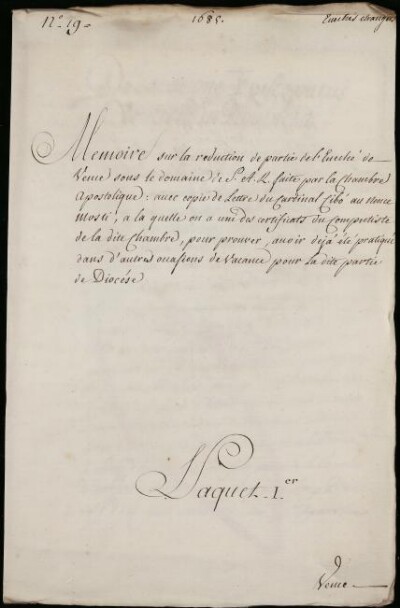 N.º 19 =
1685.
Evechés etrangers
Memoire sur la reduction de partie de l'Eveché de
Vence sous le domaine de S. A. R. faite par la Chambre
Apostolique: avec copie de Lettre du Cardinal Cibó au Nonce
Mosti, a la quelle on a uni des certificats du Computiste
de la dite Chambre, pour prouver, avoir déjà été pratiqué
dans d'autres ocasions de Vacance pour la dite partie
de Diocése
Paquet. I.er
9
Vence